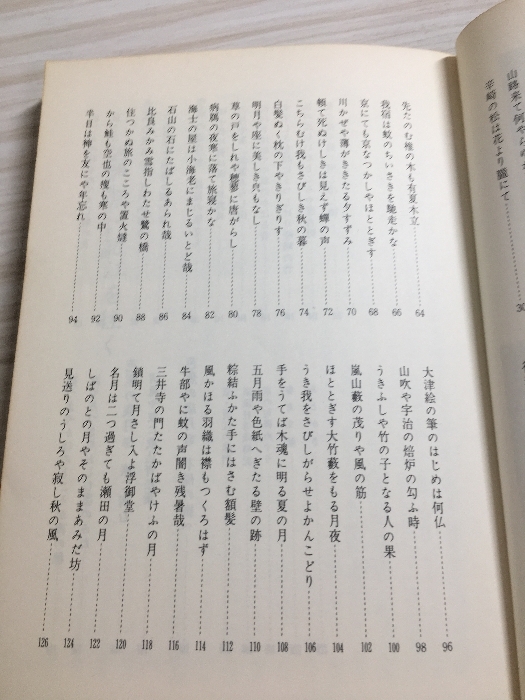 山路来て何やら
辛崎の松は花より朧にて
30
先たのむ椎の木も有夏木立 64
我宿は蚊のちいさきを馳走かな 66
京にても京なつかしやほととぎす 68
川かぜや薄がききたる夕すずみ 70
頓て死ぬけしきは見えず蟬の声 72
こちらむけ我もさびしき秋の暮 74
白髪ぬく枕の下やきりぎりす 76
明月や座に美しき皃もなし 78
草の戸をしれや穂蓼に唐がらし 80
病鴈の夜寒に落て旅寝かな 82
海士の屋は小海老にまじるいとど哉 84
石山の石にたばしるあられ哉 86
比良みかみ雪指しわたせ鷺の橋 88
住つかぬ旅のこころや置火燵 90
から鮭も空也の瘦も寒の中 92
半日は神を友にや年忘れ 94
大津絵の筆のはじめは何仏 96
山吹や宇治の焙炉の匂ふ時 98
うきふしや竹の子となる人の果 100
嵐山藪の茂りや風の筋 102
ほととぎす大竹藪をもる月夜 104
うき我をさびしがらせよかんこどり 106
手をうてば木魂に明る夏の月 108
五月雨や色紙へぎたる壁の跡 110
粽結ふかた手にはさむ額髪 112
風かほる羽織は襟もつくろはず 114
牛部やに蚊の声闇き残暑哉 116
三井寺の門たたかばやけふの月 118
鎖明て月さし入よ浮御堂 120
名月は二つ過ぎても瀬田の月 122
しばのとの月やそのままあみだ坊 124
見送りのうしろや寂し秋の風 126